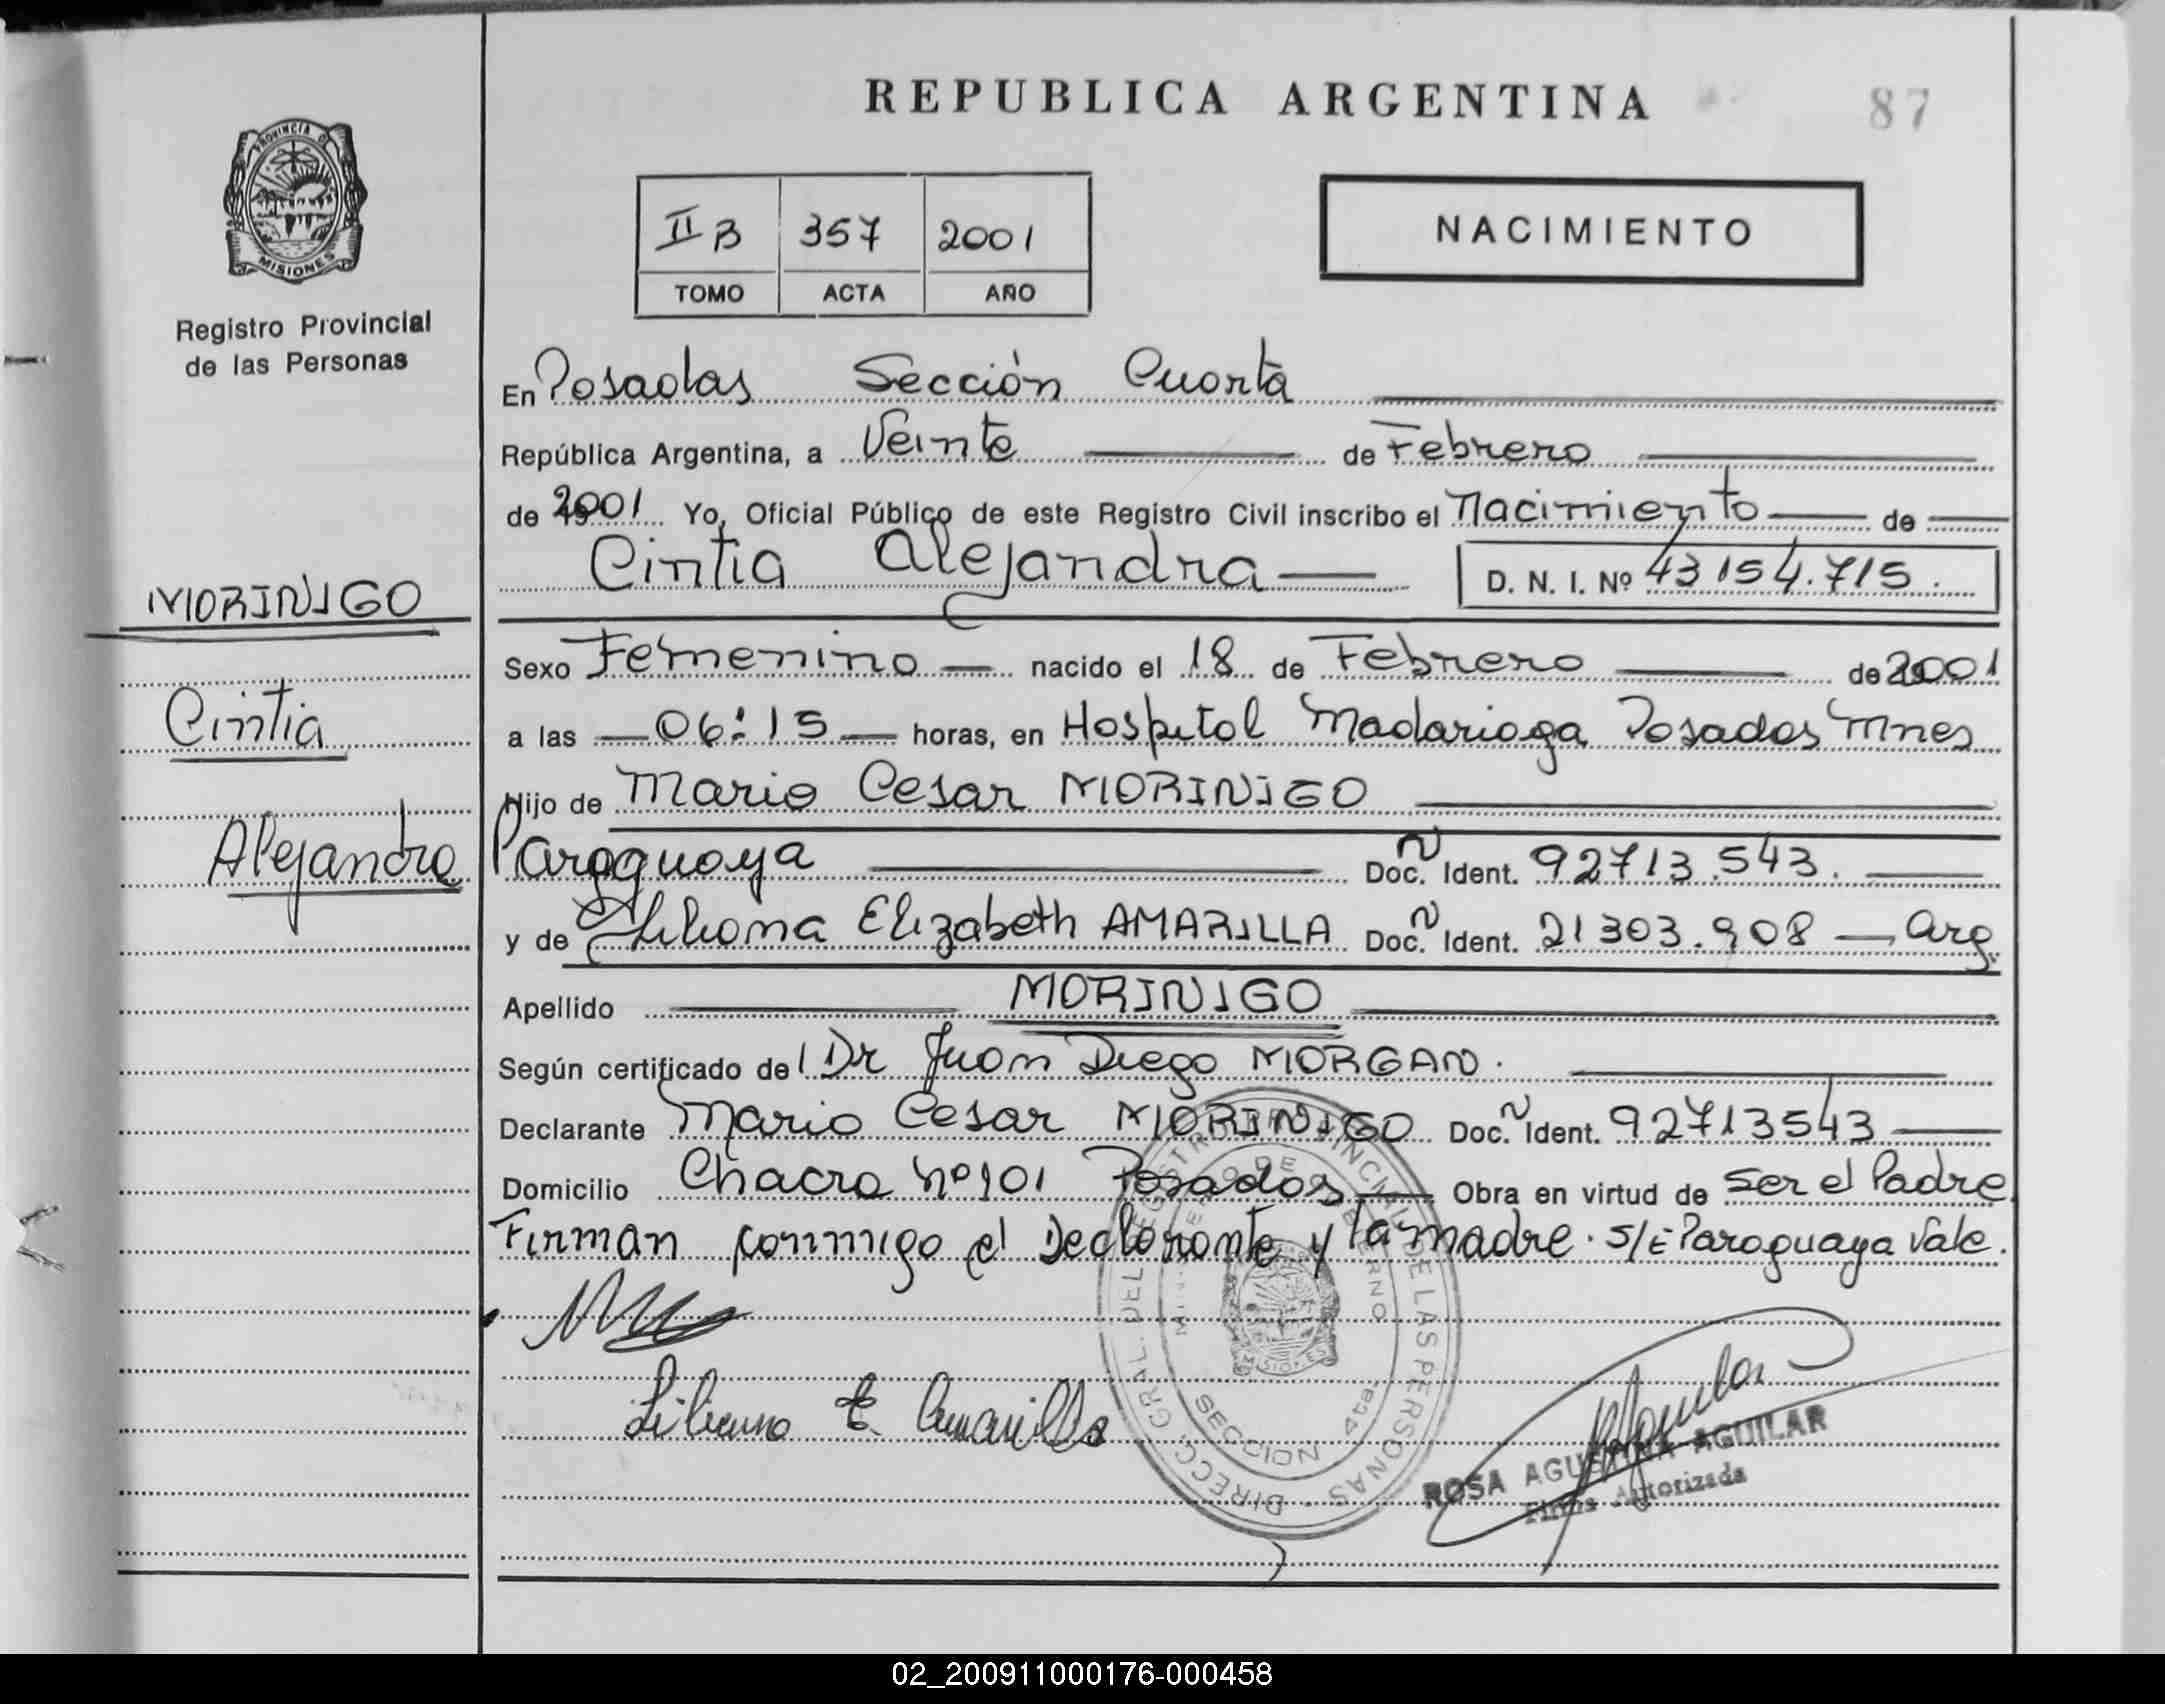 REPUBLICA ARGENTINA
87
PROVINCIA D
MISIONES
Registro Provincial
de las Personas
II B 357 2001
TOMO ACTA AÑO
NACIMIENTO
En Posadas Sección Cuarta
República Argentina, a Veinte de Febrero
de 2001 Yo, Oficial Público de este Registro Civil inscribo el Nacimiento de
Cintia Alejandra D. N. I. Nº 43154.715.
MORINIGO
Cintia
Alejandra
Sexo Femenino nacido el 18 de Febrero de 2001
a las 06:15 horas, en Hospital Madariaga Posadas Mnes
Hijo de Mario Cesar MORINIGO
Paraguaya Doc. Ident. 92713.543.
y de Liliana Elizabeth AMARILLA Doc. Ident. 21303.908 Arg.
Apellido MORINIGO
Según certificado del Dr Juan Diego MORGAN.
Declarante Mario Cesar MORINIGO Doc. Ident. 92713543
Domicilio Chacra Nº 101 Posadas Obra en virtud de ser el Padre
Firman conmigo el Declarante y la madre. S/E Paraguaya Vale.
Liliana E Amarilla
DIRECC. GRAL. DEL REGISTRO PROVINCIAL DE LAS PERSONAS
MINISTERIO DE GOBIERNO
MISIONES
SECCION 4ta.
ROSA AGUSTINA AGUILAR
Firma Autorizada
02_200911000176-000458